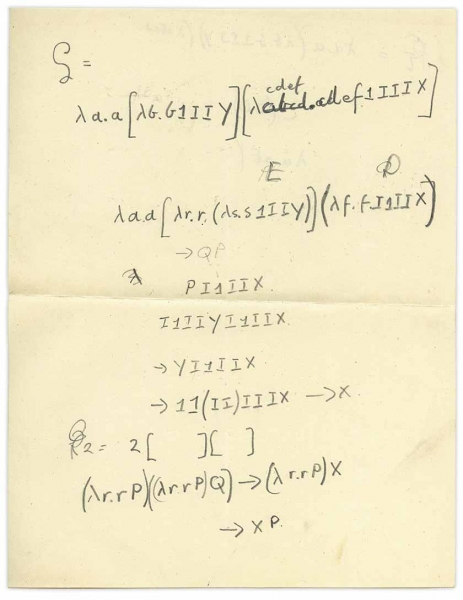 ζ =
cdef
λa.a[λG.G1IIY][λabcd.adef.1IIIX]
E D
λa.a[λr.r.(λs.s1IIY)](λf.f.I1IIX)
→QP
PI1IIX.
I1IIYI1IIX
→YI1IIX
→11(II)IIIX →X.
2 = 2[ ][ ]
(λr.rP)((λr.rP)Q)→(λr.rP)X
→XP.